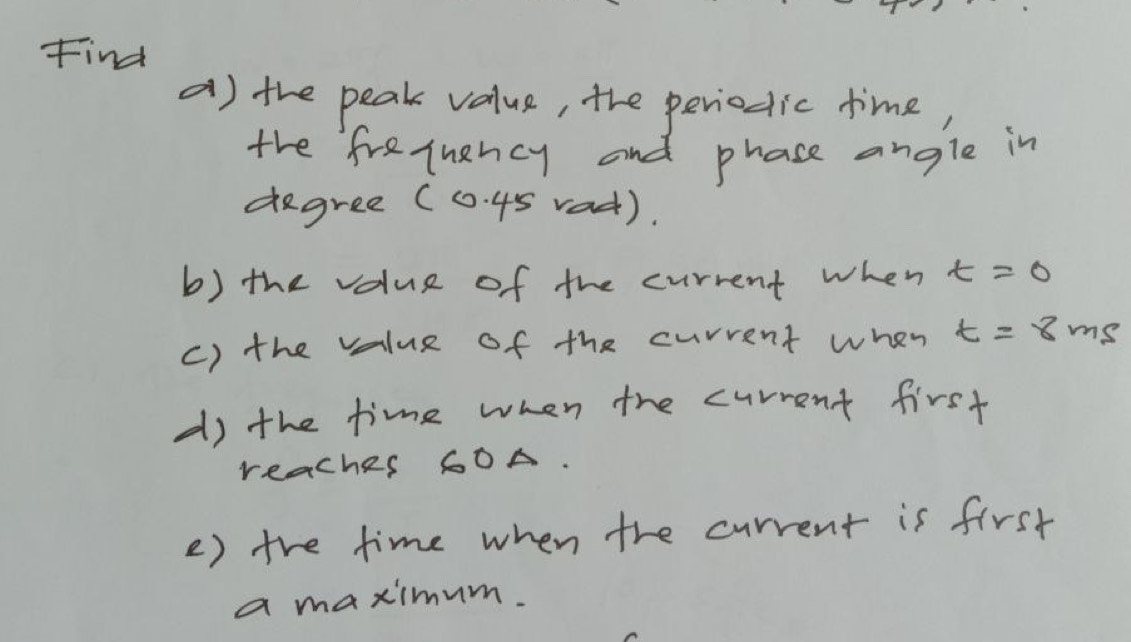 Find
a) the peak value, the periodic time,
the frequency and phase angle in
degree (0.45 rad).
b) the value of the current when t = 0
c) the value of the current when t = 8 ms
d) the time when the current first
reaches 60 A.
e) the time when the current is first
a maximum.